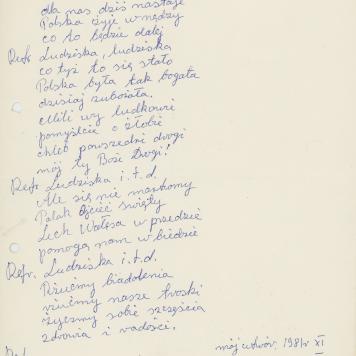 dla nas dziś nastaje
Polska żyje w nędzy
co to będzie dalej
Refr. Ludziska, ludziska
co tyż to się stało
Polska była tak bogata
dzisiaj zubożała.
Mili wy ludkowie
pomyślcie o żłobie
chleb powszedni drogi
mój ty Boże Drogi!
Refr. Ludziska i.t.d.
Ale się nie martwmy
Polak Ojciec święty
Lech Wałęsa w przedzie
pomogą nam w biedzie
Refr. Ludziska i.t.d.
Rzućmy biadolenia
rzućmy nasze troski
życzmy sobie szczęścia
zdrowia i radości.
mój utwór, 1981r XI